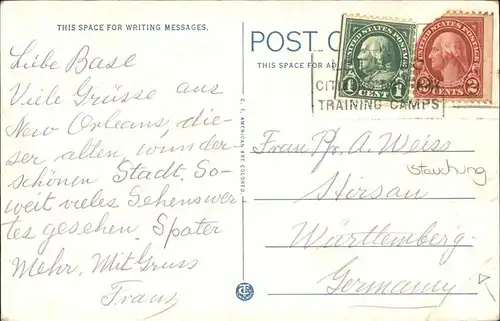 THIS SPACE FOR WRITING MESSAGES.
Liebe Base
Viele Grüsse aus
New Orleans, die-
ser alten, wunder-
schönen Stadt. So-
weit vieles Sehenswer-
tes gesehen. Später
Mehr. Mit Gruss
Franz
C. T. AMERICAN ART COLORED
POST C
THIS SPACE FOR AD
UNITED STATES POSTAGE
1 CENT 1
UNITED STATES POSTAGE
2 CENTS 2
CIT
TRAINING CAMPS
Frau Pfr. A. Weiss
Stauchung
Hirsau
Württemberg
Germany